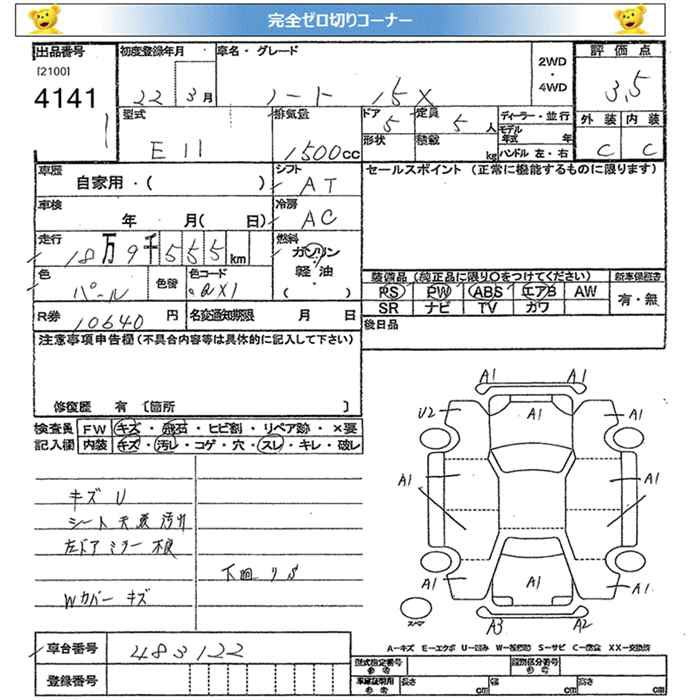 完全ゼロ切りコーナー
出品番号 初度登録年月 車名・グレード 2WD ・ 4WD 評価点
[2100]
4141 22 3月 ノート 15X 3.5
型式 排気量 ドア 定員 ディーラー・並行 外装 内装
E11 1500cc 5 5人 モデル年式 年 C C
形状 積載 kg ハンドル 左・右
車歴 シフト セールスポイント (正常に機能するものに限ります)
自家用・( ) AT
車検 冷房
年 月( 日) AC
走行 燃料
18万9千555km ガソリン・軽油・( )
色 色替 色コード 装備品 (純正品に限り○をつけてください) 新車保証書
パール QX1 PS PW ABS エアB AW 有・無
SR ナビ TV カワ
R券 10640円 名変通知期限 月 日 後日品
注意事項申告欄(不具合内容等は具体的に記入して下さい)
修復歴 有 〔箇所 〕
検査員 FW キズ・飛石・ヒビ割・リペア跡・×要
記入欄 内装 キズ・汚レ・コゲ・穴・スレ・キレ・破レ
キズU
シート 天張 汚れ
左ドアミラー 不良
下回りS
Wカバー キズ
A1 A1
U2 A1 A1
A1 A1
A1 A1 A1
A3 A2
A-キズ E-エクボ U-凹み S-サビ C-腐食 XX-交換済
車台番号 483122
登録番号 型式指定番号 参考 類別区分番号 参考
車庫証明用 参考 長さ cm 幅 cm 高さ cm